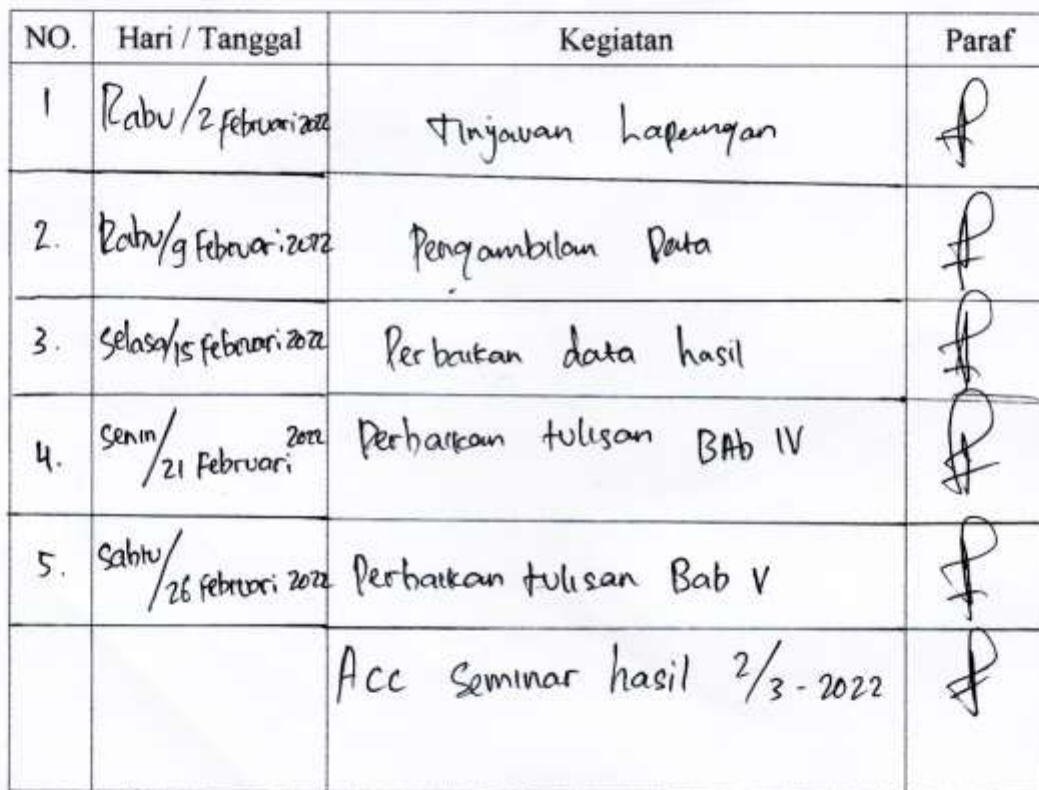 NO. Hari / Tanggal Kegiatan Paraf
1 Rabu/2 Februari 2022 Tinjauan Lapangan
2. Rabu/9 Februari 2022 Pengambilan Data
3. Selasa/15 Februari 2022 Perbaikan data hasil
4. Senin/21 Februari 2022 Perbaikan tulisan BAb IV
5. Sabtu/26 Februari 2022 Perbaikan tulisan Bab V
Acc Seminar hasil 2/3-2022